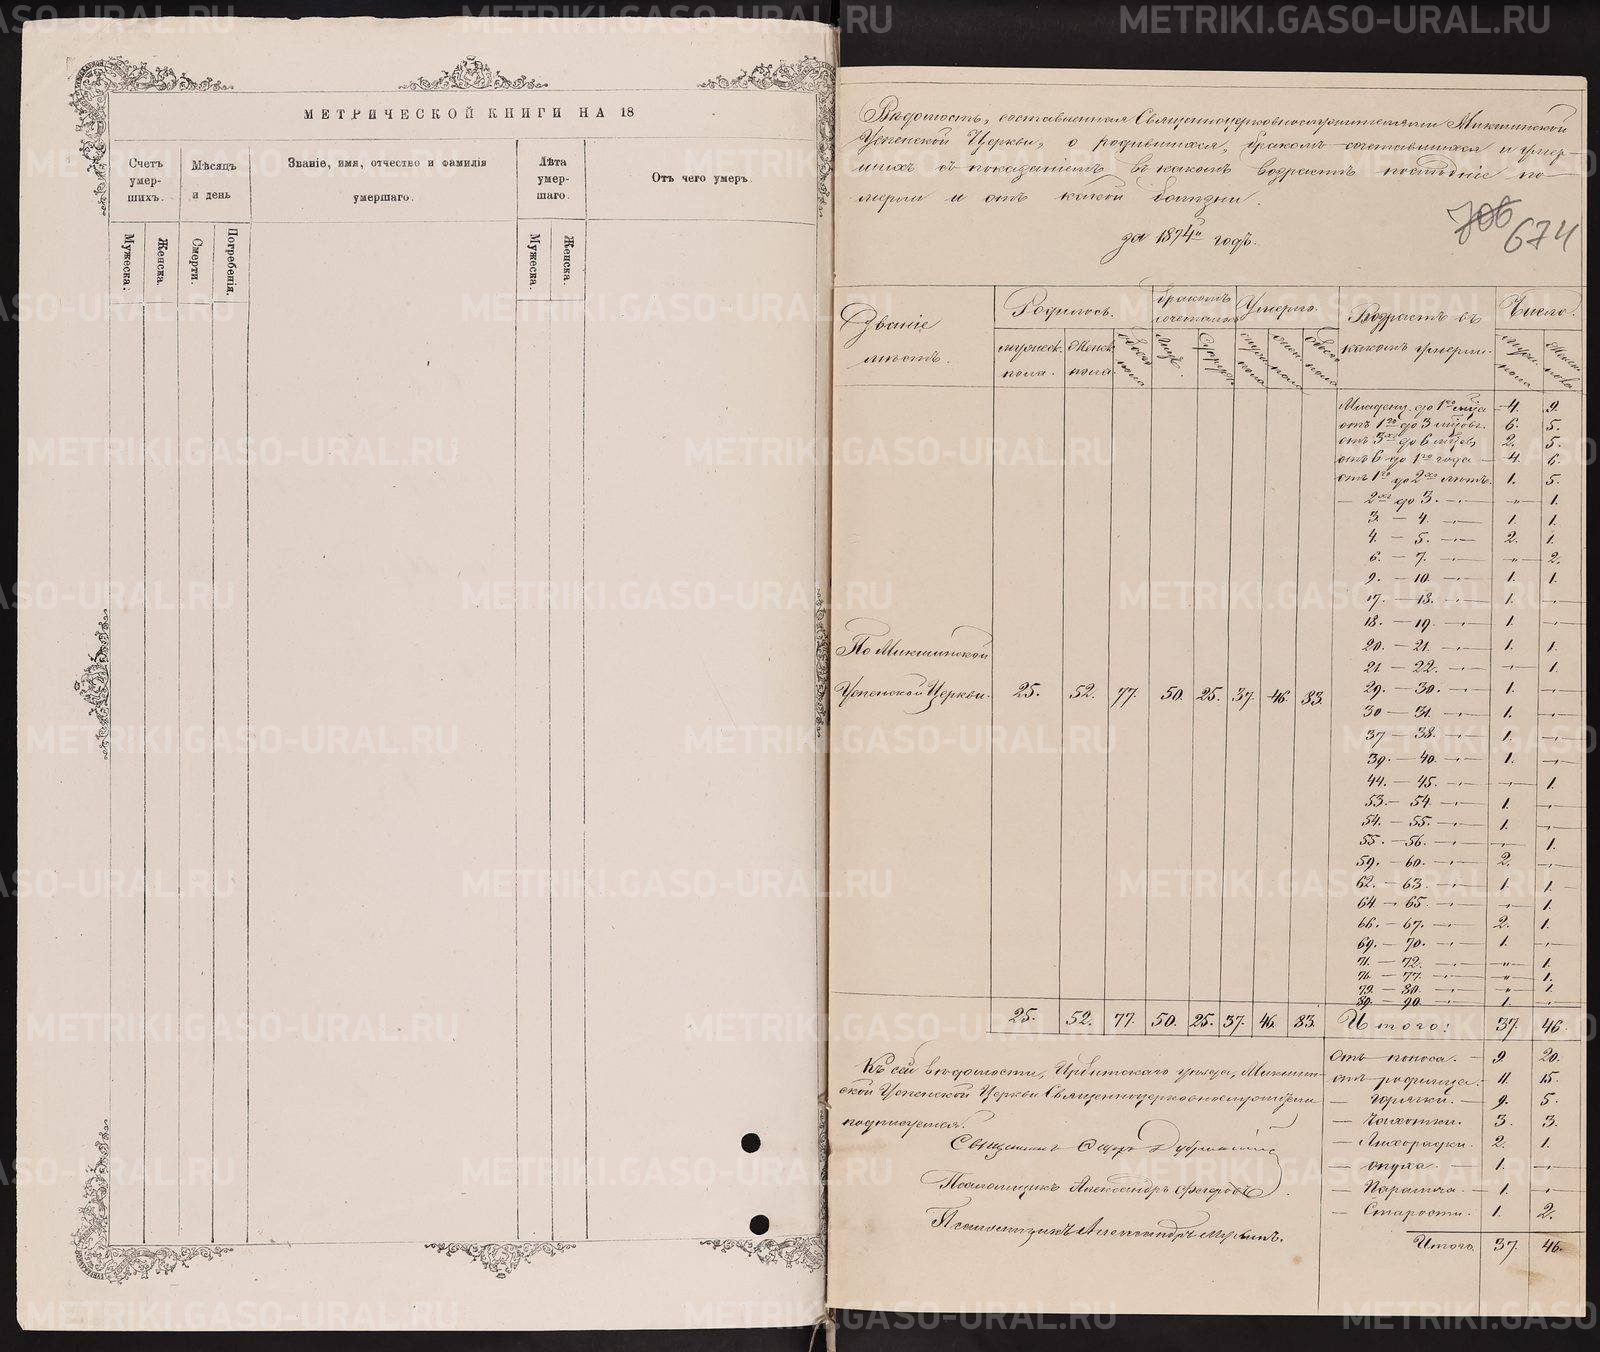 МЕТРИЧЕСКОЙ КНИГИ НА 18
Счетъ умер-шихъ.
Мѣсяцъ и день
Званіе, имя, отчество и фамилія умершаго.
Лѣта умер-шаго.
Отъ чего умеръ
Мужеска.
Женска.
Смерти.
Погребенія.
Мужеска.
Женска.
Вѣдомость, составленная Священноцерковнослужителями Микшинской
Успенской Церкви, о родившихся, бракомъ сочетавшихся и умер-
шихъ съ показаніемъ въ какомъ возрастѣ послѣдніе по-
мерли и отъ какой болѣзни.
за 1874й годъ.
706
674
Званіе мѣстъ.
Родилось.
Бракомъ сочеталось
Умерло.
Возрастъ въ какомъ умерли.
Число.
мужеск. пола.
Женск. пола.
обоего пола
Младенц. до 1го м-ца 4. 9.
отъ 1го до 3 м-цовъ. 6. 5.
отъ 3хъ до 6 м-цев 2. 5.
отъ 6 до 1го года 4. 6.
отъ 1го до 2хъ лѣтъ. 1. 5.
— 2хъ до 3. — „ — 1.
3. — 4. — 1. 1.
4. — 5. — 2. 1.
6. — 7. — „ — 2.
9. — 10. — 1. 1.
17. — 18. — 1. —
18. — 19. — 1. —
20. — 21. — 1. 1.
21 — 22. — — 1.
29. — 30. — 1. —
30 — 31. — 1. —
37 — 38. — 1. —
39. — 40. — 1. —
44. — 45. — — 1.
53. — 54. — 1. —
54. — 55. — 1. —
55. — 56. — — 1.
59. — 60. — 2. —
62. — 63. — 1. 1.
64. — 65. — — 1.
66. — 67. — 2. 1.
69. — 70. — 1. —
71. — 72. — „ — 1.
76. — 77. — „ 1.
79. — 80. — „ 1.
89. — 90. — 1. —
По Микшинской
Успенской Церкви. 25. 52. 77. 50. 25. 37. 46. 83.
25. 52. 77. 50. 25. 37. 46. 83. Итого: 37. 46.
Къ сей вѣдомости, Ирбитскаго уѣзда, Микшин-
ской Успенской Церкви Священноцерковнослужители
подписуемся.
Священникъ
Псаломщикъ Александръ Ѳедоровъ
Псаломщикъ Александръ
отъ поноса. — 9 20.
отъ родимца. — 11. 15.
— Горячки. — 9. 5.
— Чахотки. 3. 3.
— Лихорадки. 2. 1.
— опуха. 1. —
— Паралича. — 1. —
— Старости. 1. 2.
Итого 37. 46.
METRIKI.GASO-URAL.RU